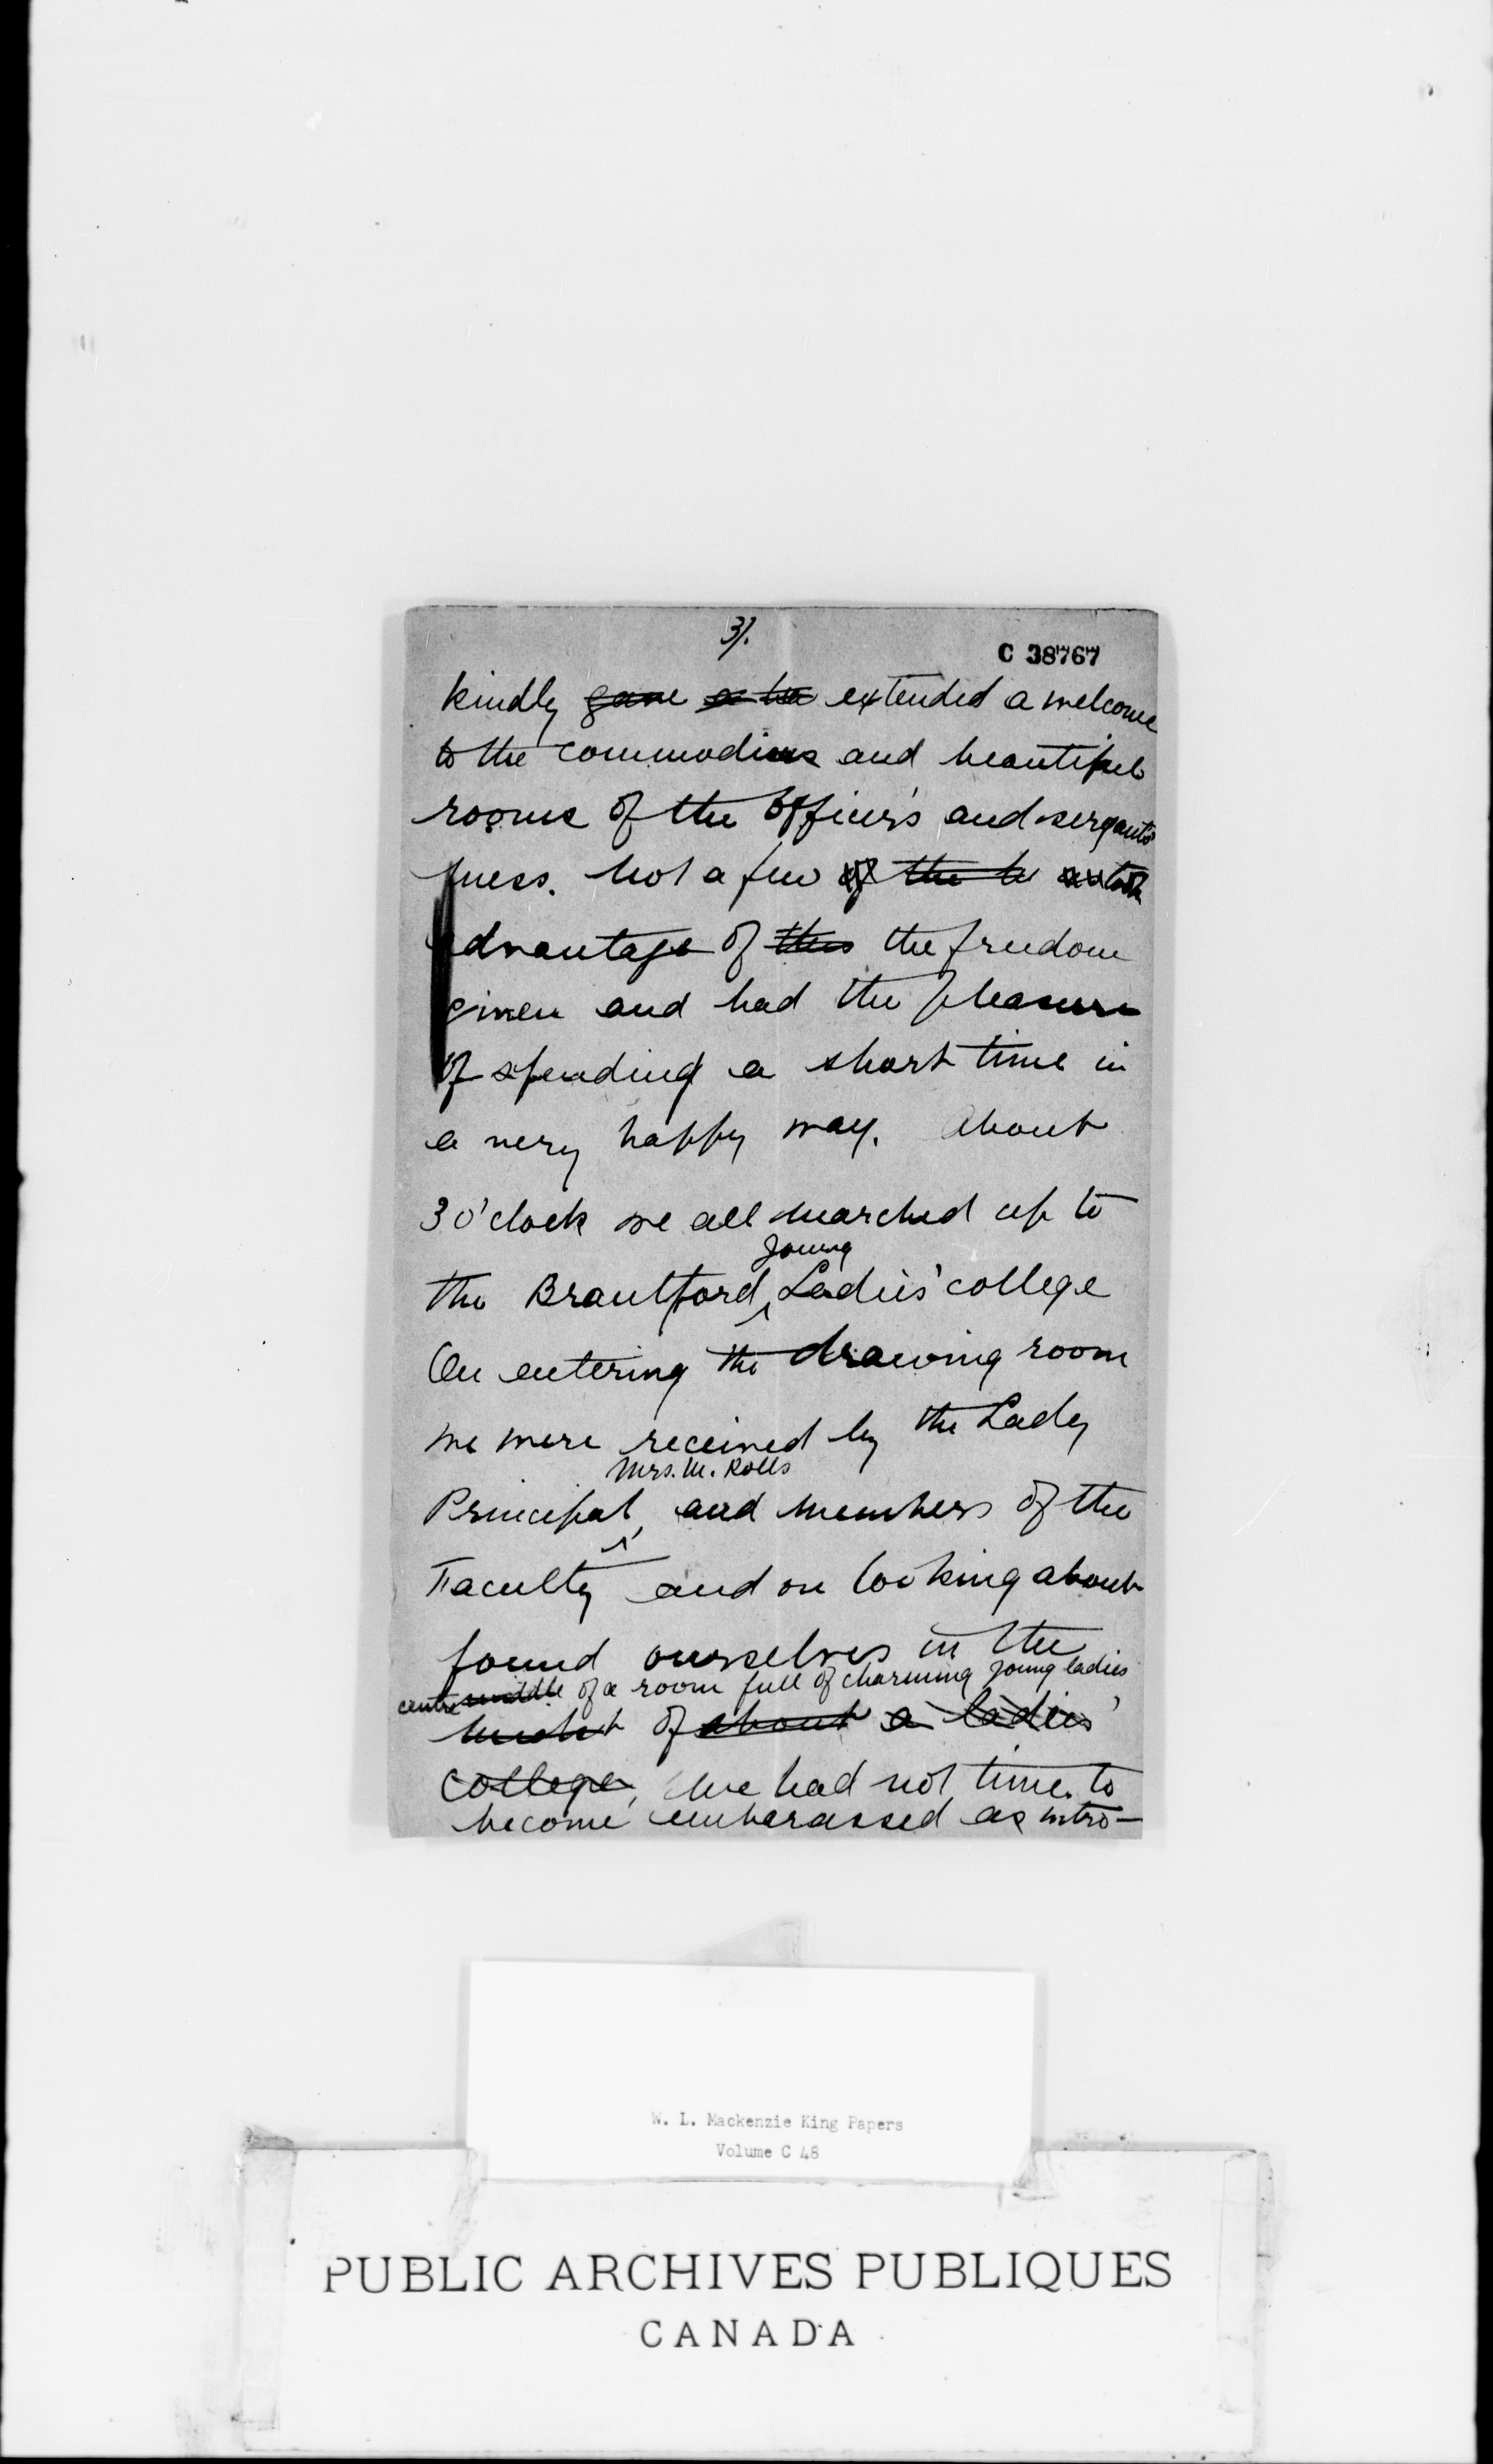 3/.
C 38767
kindly gave a extended a welcome
to the commodious and beautiful
rooms of the Officer's and sergants'
mess. Not a few of the took
advantage of this the freedom
given and had the pleasure
of spending a short time in
a very happy way. About
3 o'clock we all marched up to
young
the Brantford Ladies' college
On entering the drawing room
we were received by the Lady
Mrs. M. Rolls
Principal, and members of the
Faculty and on looking about
found ourselves in the
centre middle of a room full of charming young ladies
midst of about a ladies'
college, We had not time to
become embarassed as intro-
W. L. Mackenzie King Papers
Volume C 48
PUBLIC ARCHIVES PUBLIQUES
CANADA